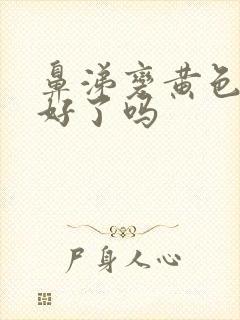 鼻涕变黄色
好了吗
尸身人心